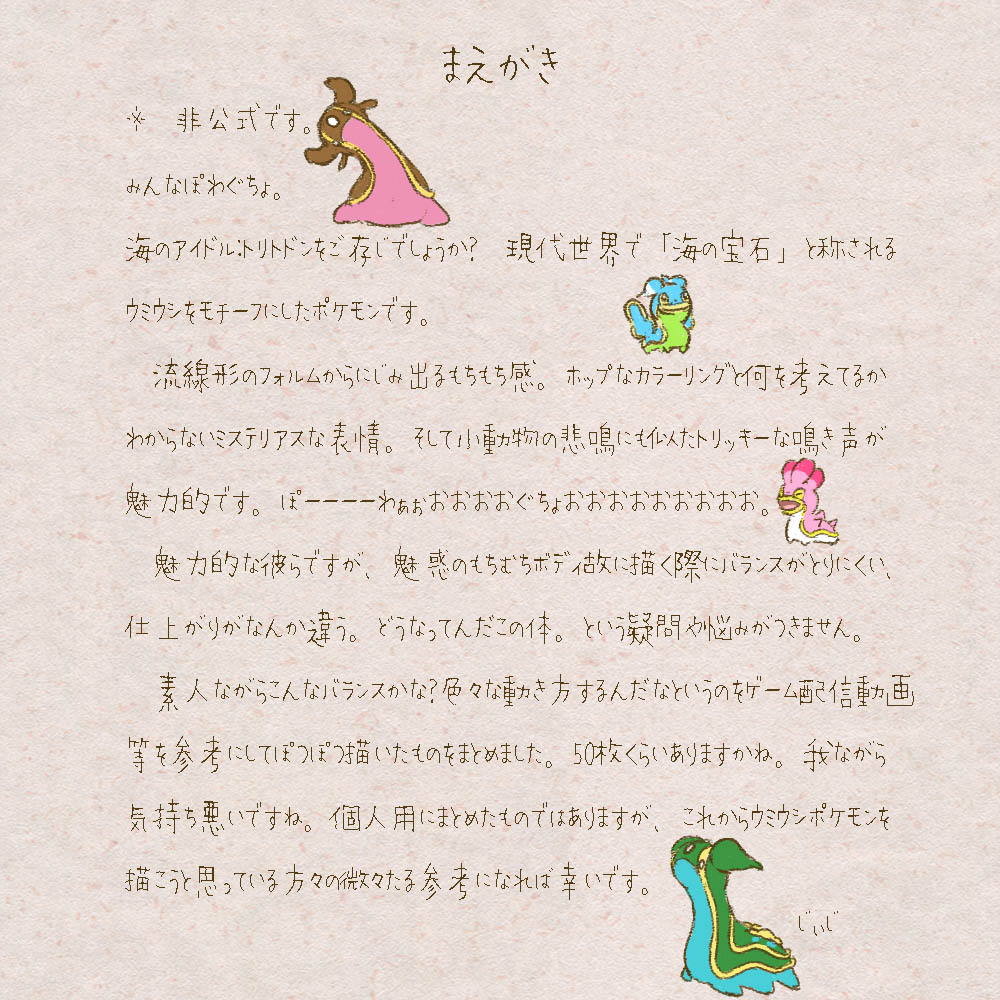 まえがき
※ 非公式です。
みんなぽわぐちょ。
海のアイドル:トリトドンをご存じでしょうか? 現代世界で「海の宝石」と称される
ウミウシをモチーフにしたポケモンです。
流線形のフォルムからにじみ出るもちもち感。ポップなカラーリングと何を考えてるか
わからないミステリアスな表情。そして小動物の悲鳴にも似たトリッキーな鳴き声が
魅力的です。ぽーーーーわぁぉおおおおぐちょおおおおおおおおお。
魅力的な彼らですが、魅惑のもちむちボディ故に描く際にバランスがとりにくい、
仕上がりがなんか違う。どうなってんだこの体。という疑問や悩みがつきません。
素人ながらこんなバランスかな?色々な動き方するんだなというのをゲーム配信動画
等を参考にしてぽつぽつ描いたものをまとめました。50枚くらいありますかね。我ながら
気持ち悪いですね。個人用にまとめたものではありますが、これからウミウシポケモンを
描こうと思っている方々の微々たる参考になれば幸いです。
じぃじ